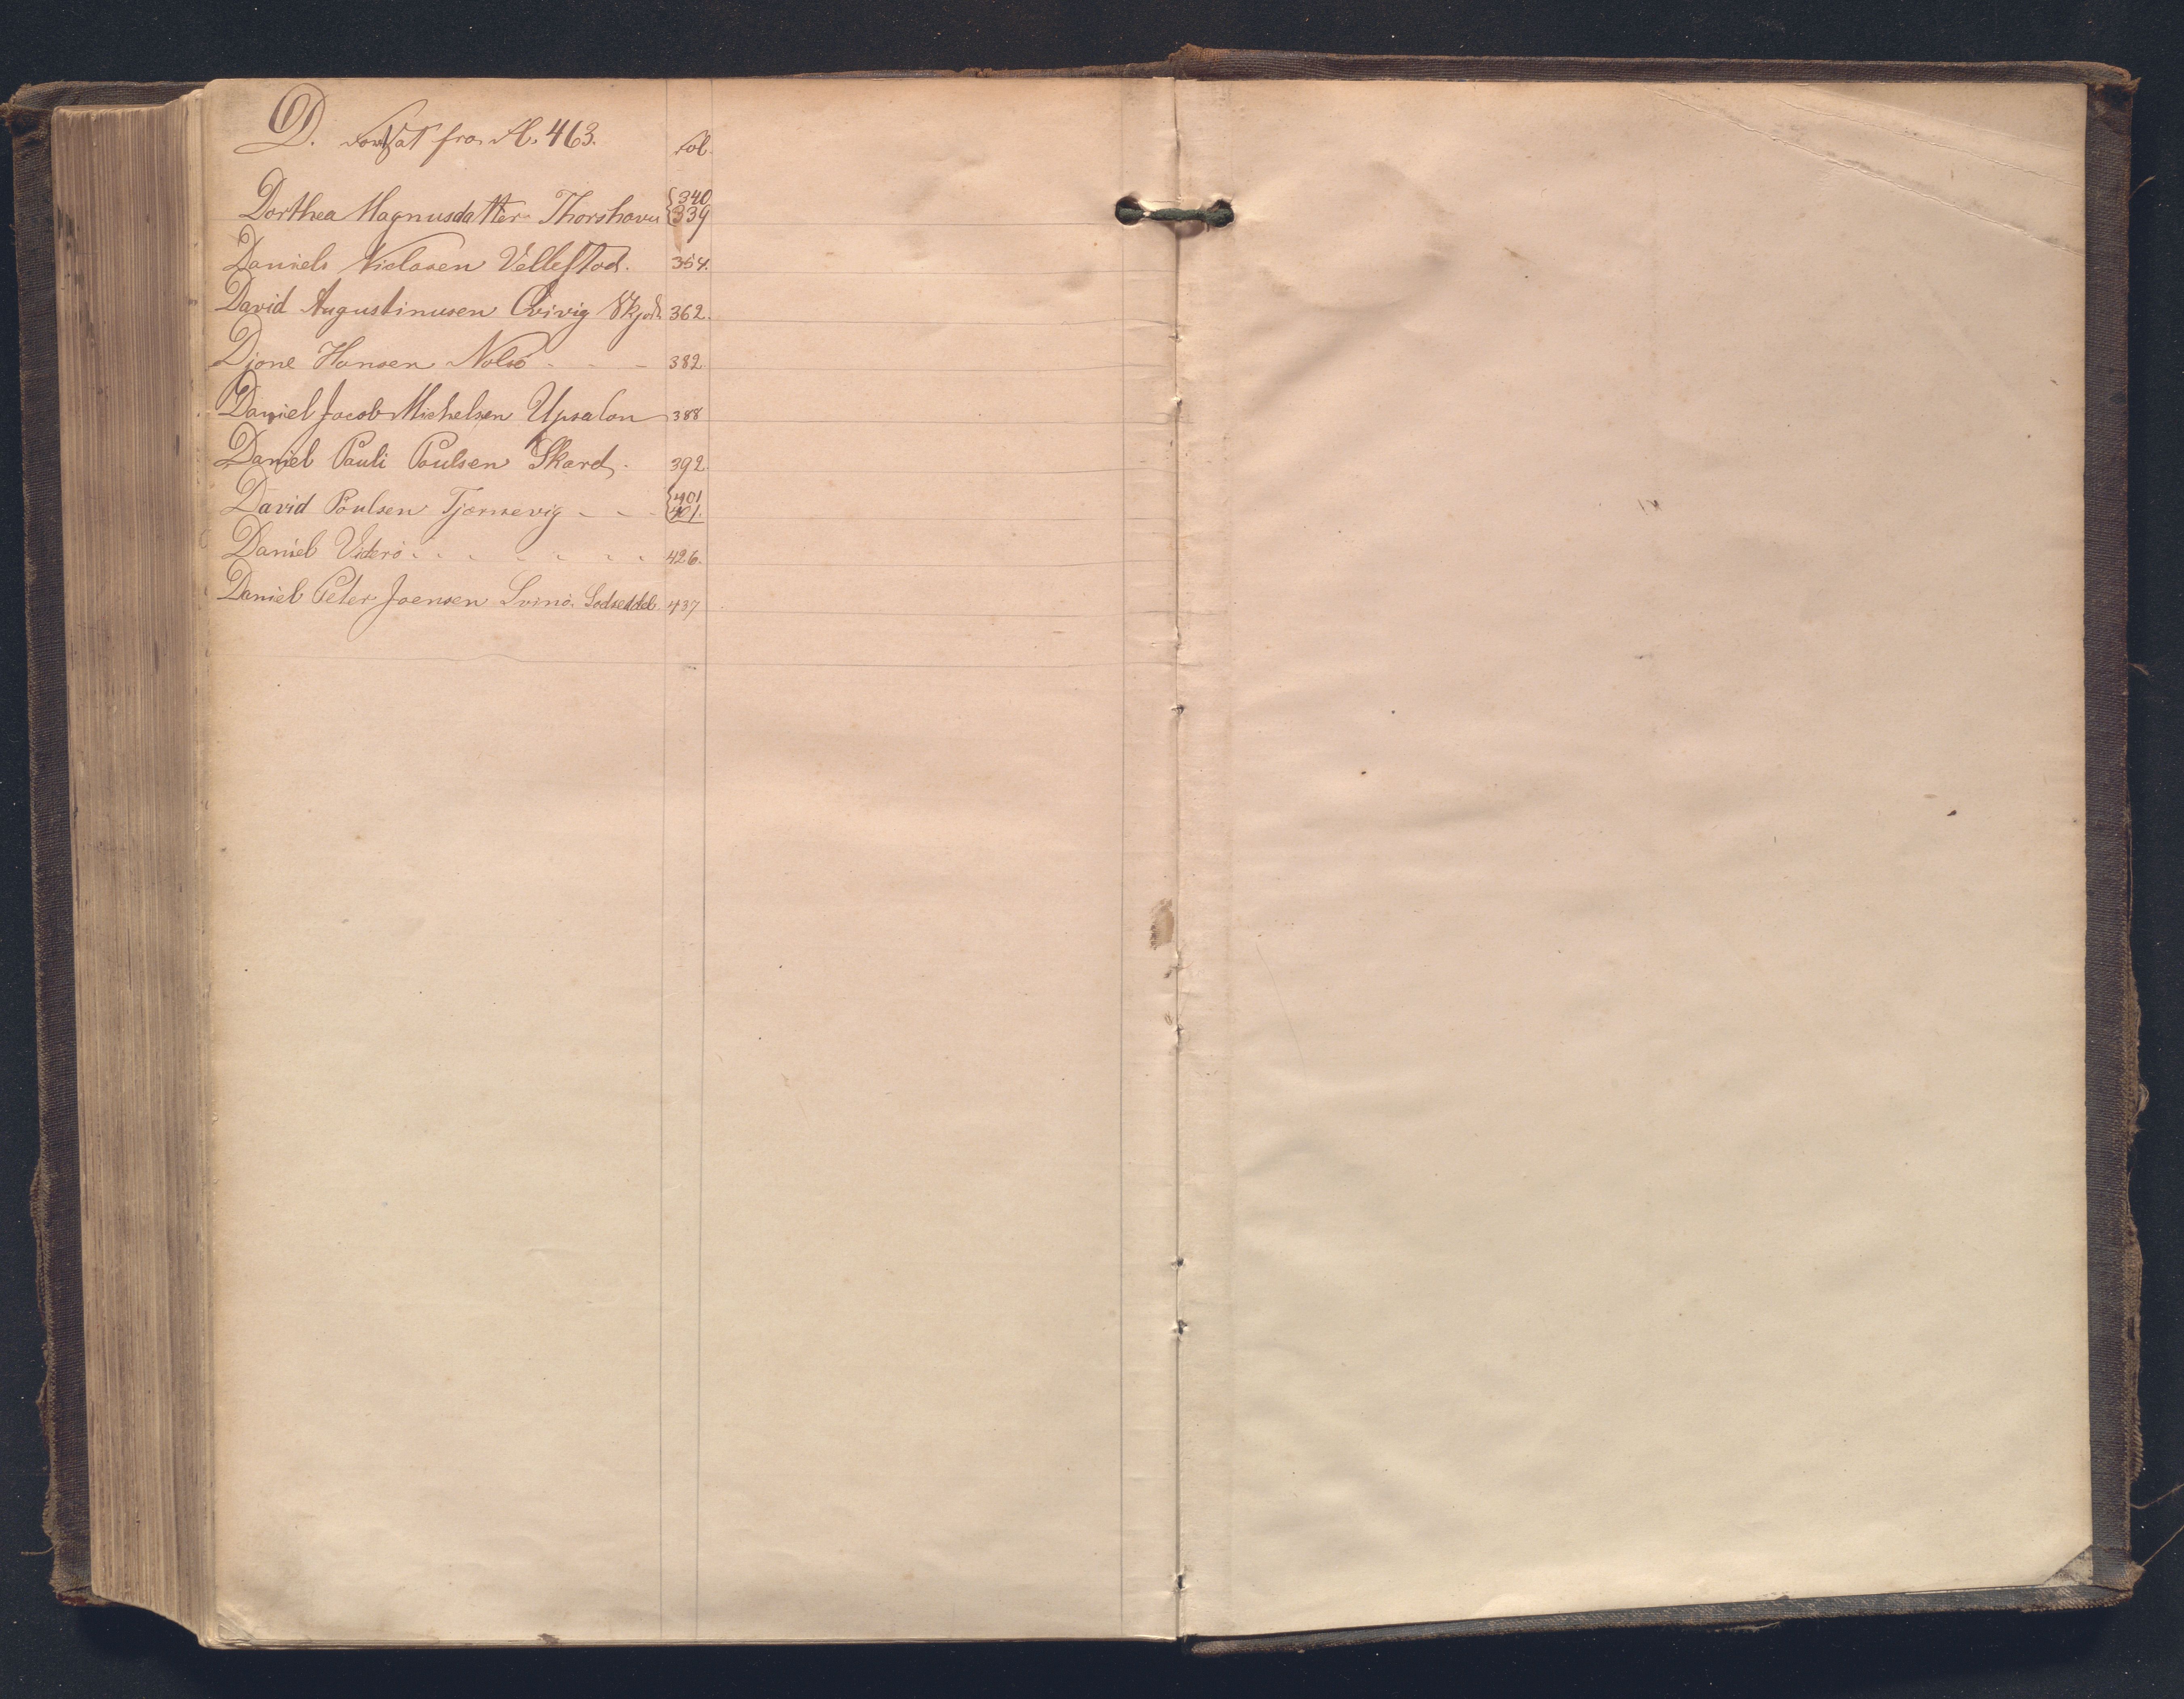 D. Fortsat fra A. 463. Fol.
Dorthea Magnusdatter Thorshavn {340
339
Daniels Niclasen Vellestad. 354.
David Augustinusen Qvivig Skjøde 362.
Djone Hansen Nolsö - - - 382.
Daniel Jacob Michelsen Upsalon 388
Daniel Pauli Poulsen Skard. 392.
David Poulsen Tjørnevig - - - {401
401.
Daniel Viderö 426.
Daniel Peter Joensen Svinö. Sodseddel. 437